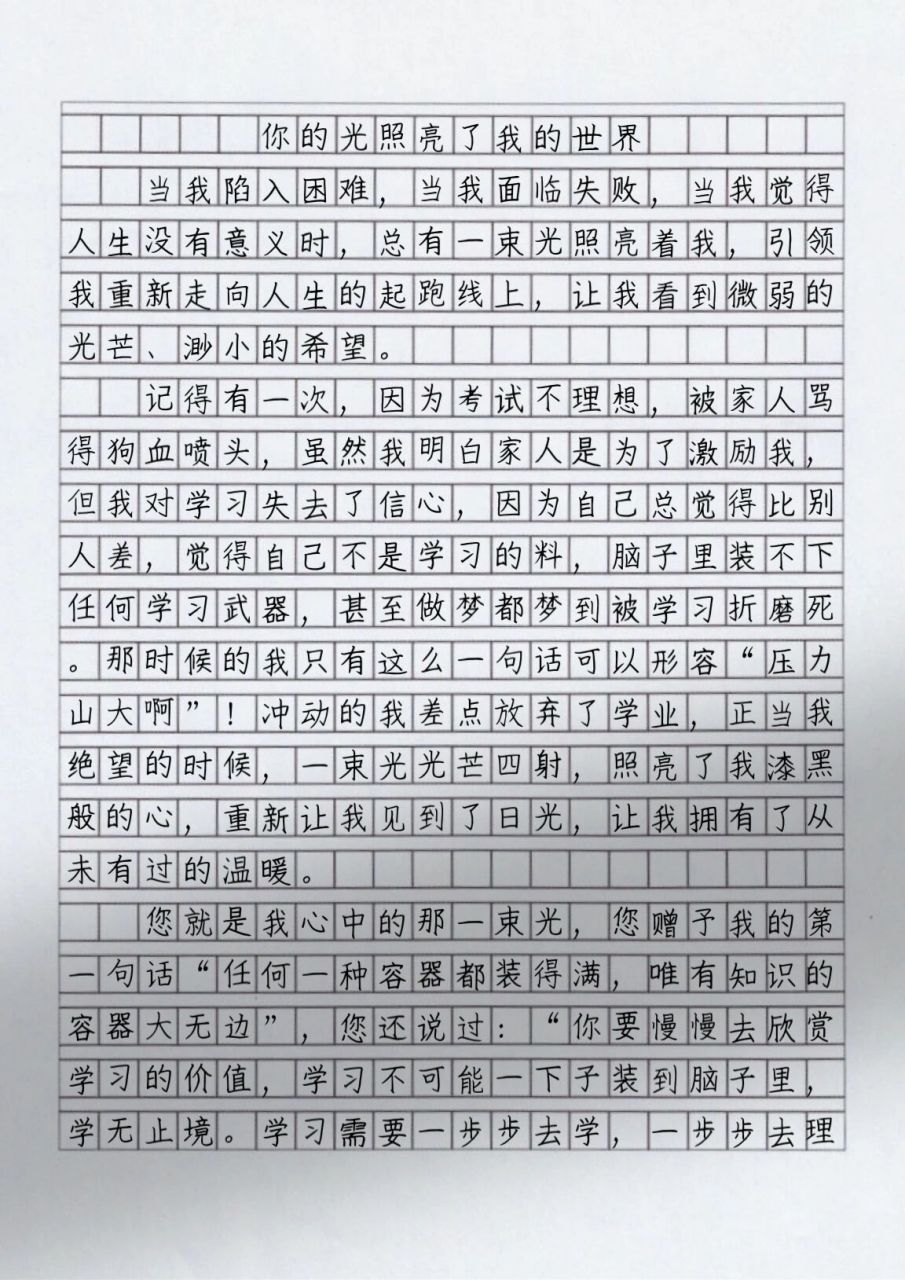 你的光照亮了我的世界
当我陷入困难，当我面临失败，当我觉得
人生没有意义时，总有一束光照亮着我，引领
我重新走向人生的起跑线上，让我看到微弱的
光芒、渺小的希望。
记得有一次，因为考试不理想，被家人骂
得狗血喷头，虽然我明白家人是为了激励我，
但我对学习失去了信心，因为自己总觉得比别
人差，觉得自己不是学习的料，脑子里装不下
任何学习武器，甚至做梦都梦到被学习折磨死
。那时候的我只有这么一句话可以形容“压力
山大啊”！冲动的我差点放弃了学业，正当我
绝望的时候，一束光光芒四射，照亮了我漆黑
般的心，重新让我见到了日光，让我拥有了从
未有过的温暖。
您就是我心中的那一束光，您赠予我的第
一句话“任何一种容器都装得满，唯有知识的
容器大无边”，您还说过：“你要慢慢去欣赏
学习的价值，学习不可能一下子装到脑子里，
学无止境。学习需要一步步去学，一步步去理